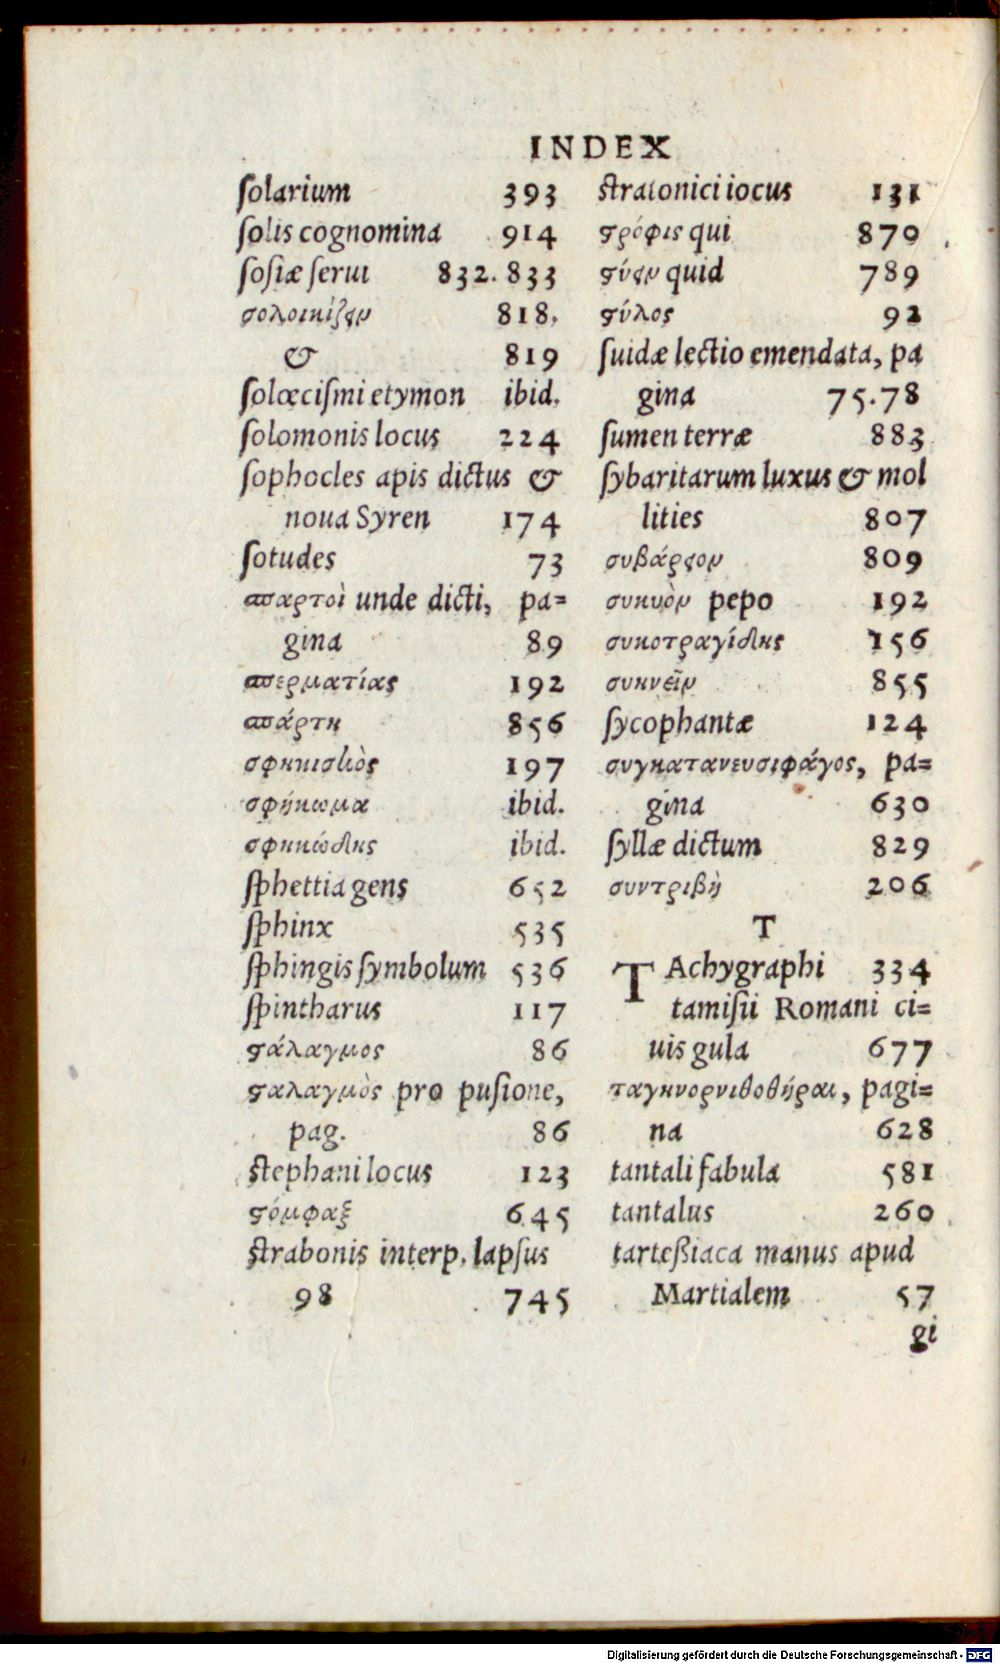 INDEX
ſolarium 393
ſolis cognomina 914
ſoſiæ ſerui 832. 833
σολοικίζειν 818.
& 819
ſolœciſmi etymon ibid.
ſolomonis locus 224
ſophocles apis dictus &
noua Syren 174
ſotudes 73
σπαρτοὶ unde dicti, pa=
gina 89
σπερματίας 192
σπάρτη 856
σφηκισμὸς 197
σφήκωμα ibid.
σφηκώδης ibid.
ſphettia gens 652
ſphinx 535
ſphingis ſymbolum 536
ſpintharus 117
ϛάλαγμος 86
ϛαλαγμὸς pro puſione,
pag. 86
ſtephani locus 123
ϛόμφαξ 645
ſtrabonis interp. lapſus
98 745
ſtratonici iocus 131
ϛρόφις qui 870
ϛύειν quid 789
ϛύλος 92
ſuidæ lectio emendata, pa
gina 75.78
ſumen terræ 883
ſybaritarum luxus & mol
lities 807
συβάρειον 809
συκυὸν pepo 192
συκοτραγίδης 156
συκνεῖν 855
ſycophantæ 124
συγκατανευσιφάγος, pa=
gina 630
ſyllæ dictum 829
συντριβὴ 206
T
TAchygraphi 334
tamiſii Romani ci=
uis gula 677
ταγηνορνιθοθήραι, pagi=
na 628
tantali fabula 581
tantalus 260
tarteßiaca manus apud
Martialem 57
gi
Digitalisierung gefördert durch die Deutsche Forschungsgemeinschaft - DFG